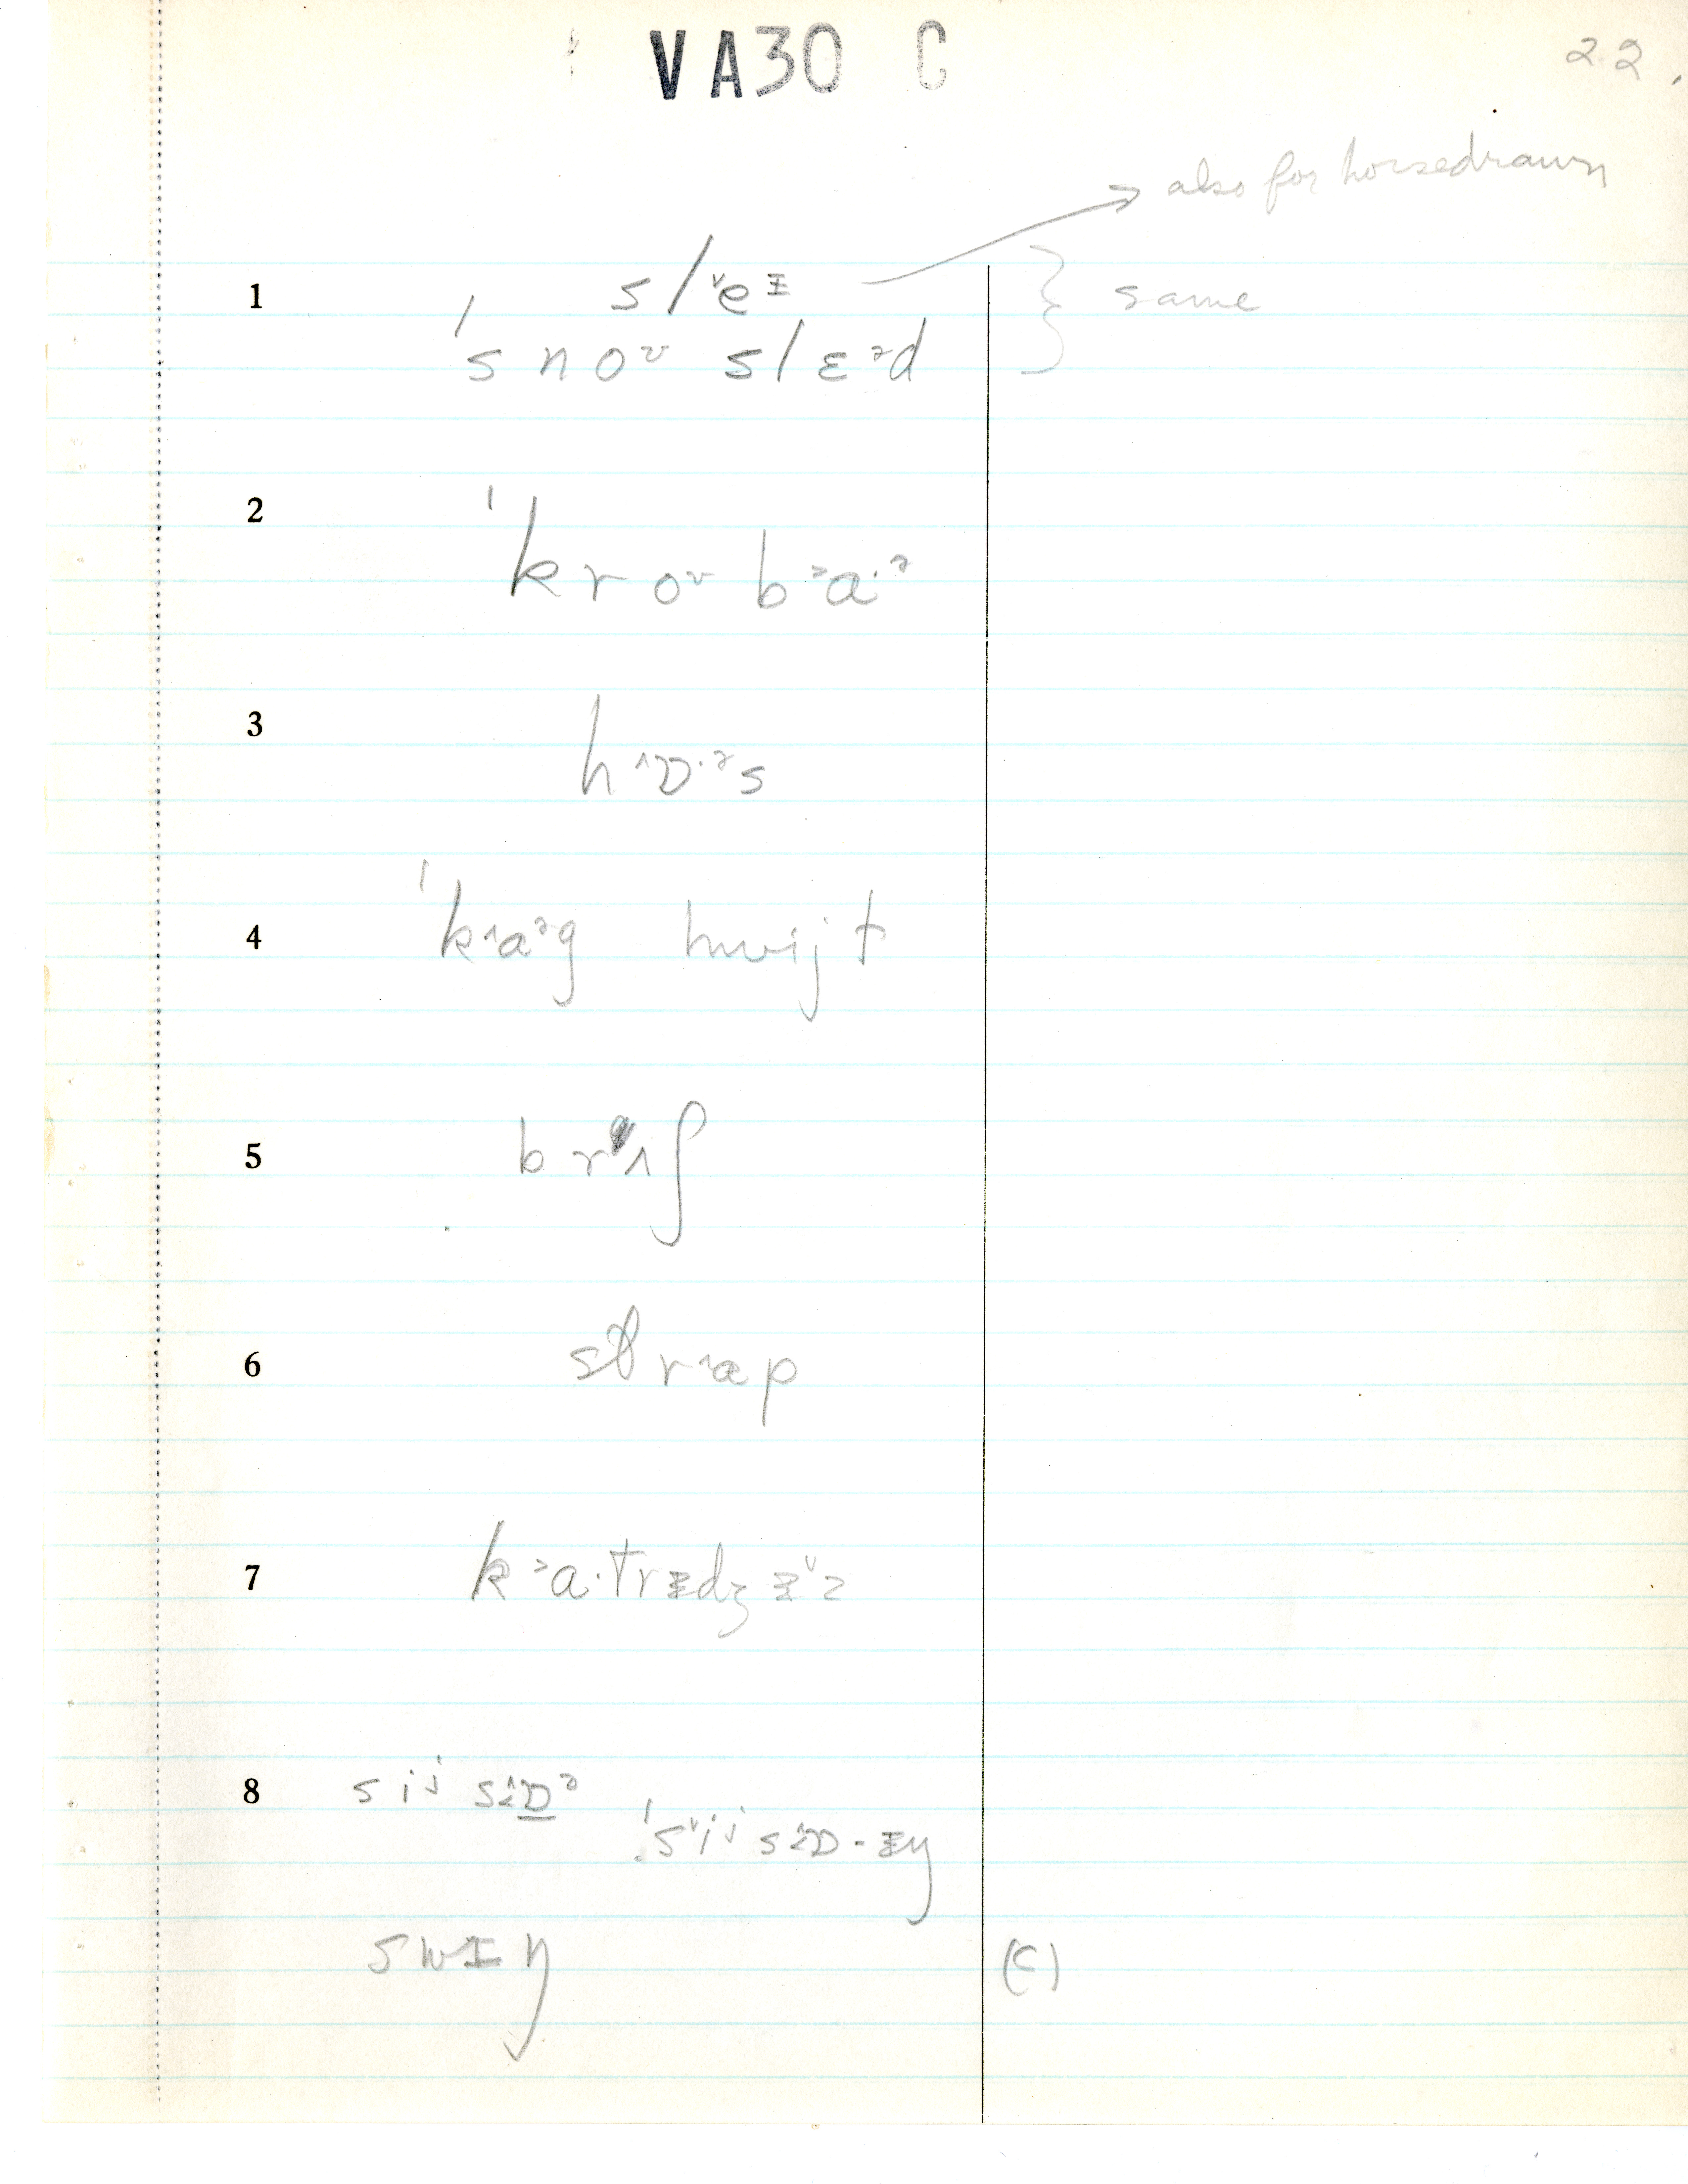 VA30 C
22.
also for horsedrawn
1 sl˅eᵻ
ˈsnoᶷ slɛᵊd } same
2 ˈkroᶷ b˃a·ᵊ
3 h˄ɒ·ᵊs
4 ˈk˄aᵊg hwijt
5 br ʌʃ
6 str˄ap
7 k˃a·trᵻdʒᵻ˅z
8 siʲ s˄ɒᵊ
ˈs˅iʲ s˄ɒ·ᵻŋ
swɪŋ (C)